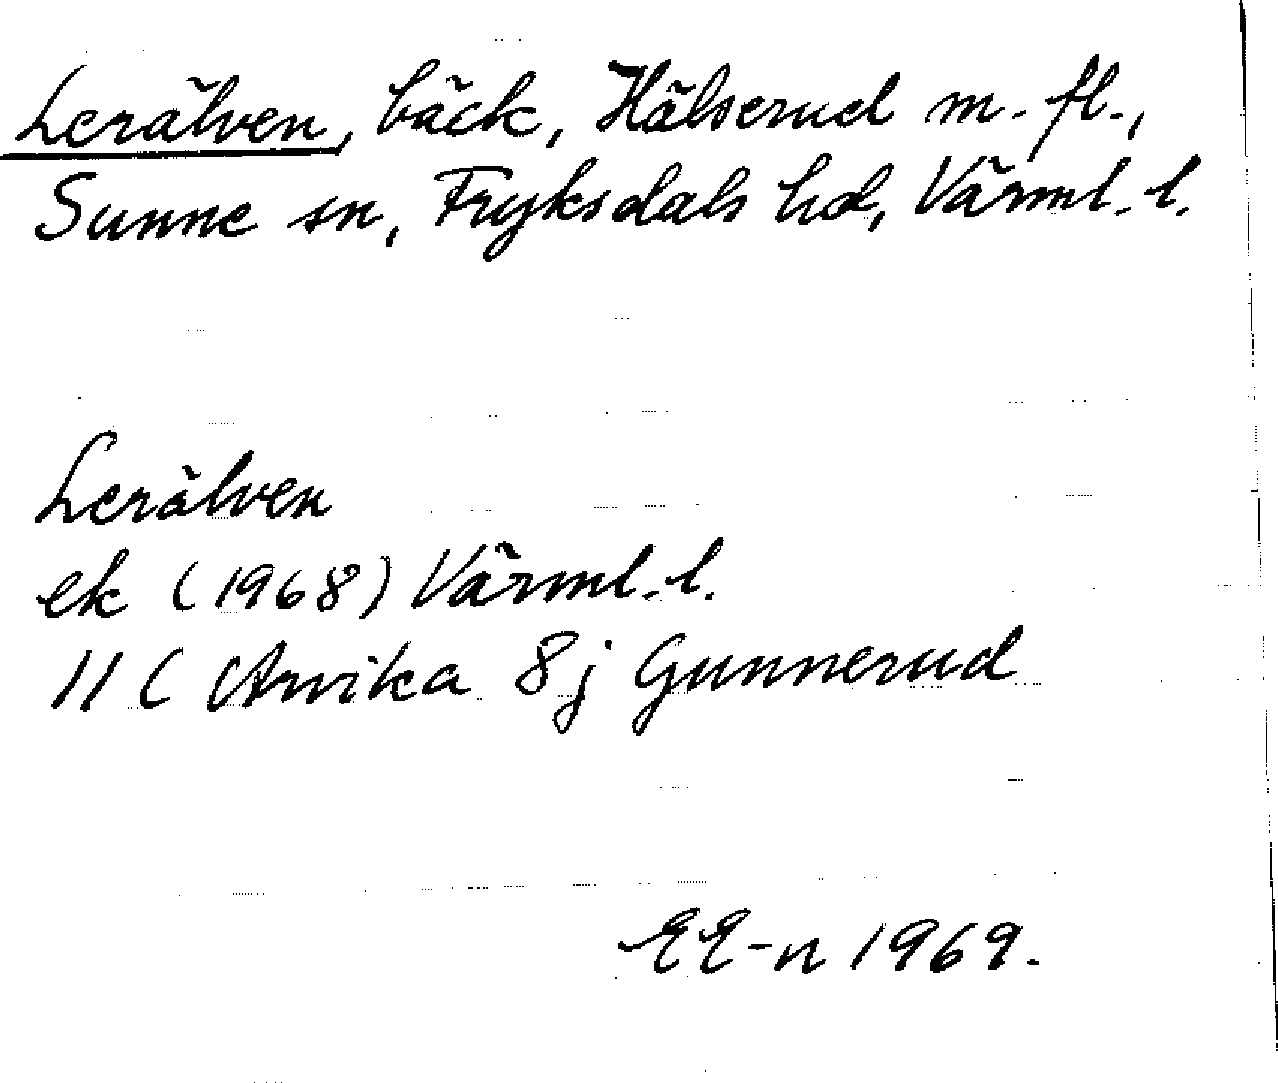 Lerälven, bäck, Hälserud m. fl.,
Sunne sn, Fryksdals hd, Värml. l.
Lerälven
ek (1968) Värml. l.
11 C Arvika 8j Gunnerud
EE-n 1969.